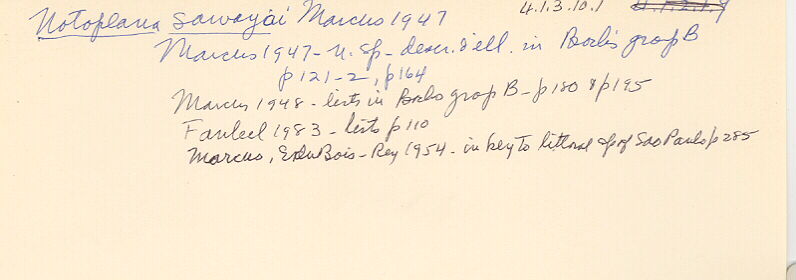 Notoplana sawayai Marcus 1947 4.1.3.10.1
Marcus 1947 - n. sp. - descr. & ill. in Bock's group B
p 121-2, p 164
Marcus 1948 - lists in Bocks group B - p 180 & p 195
Faubel 1983 - lists p 110
Marcus, E. du Bois-Rey 1954 - in key to littoral sp of Sao Paulo p 285